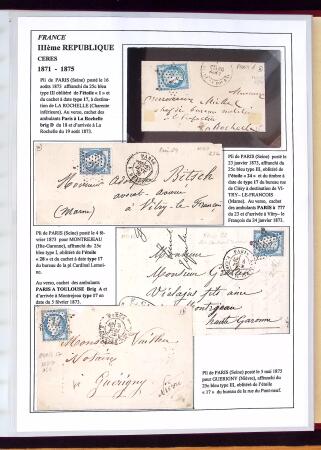 FRANCE
IIIème REPUBLIQUE
CERES
1871 - 1875
Pli de PARIS (Seine) posté le 16
août 1873 affranchi du 25c bleu
type III oblitéré de l'étoile « 1 » et
du cachet à date type 17, à destina-
tion de LA ROCHELLE (Charente
inférieure). Au verso, cachet des
ambulants Paris à La Rochelle
brig D du 18 et d'arrivée à La
Rochelle du 19 août 1873.
Monsieur Michel
La Rochelle
Pli de PARIS (Seine) posté le
23 janvier 1873, affranchi du
25c bleu type III, oblitéré de
l'étoile « 24 » et du timbre à
date type 17 du bureau rue
de Cléry à destination de VI-
TRY-LE-FRANCOIS
(Marne). Au verso, cachet
des ambulants Paris à ???
du 23 et d'arrivée à Vitry-le-
François du 24 janvier 1873.
Monsieur Ad Bitsch
avocat-avoué
à Vitry-le-François
(Marne)
Pli de PARIS (Seine) posté le 4 fé-
vrier 1873 pour MONTREJEAU
(Hte-Garonne), affranchi du 25c
bleu type III, oblitéré de l'étoile
« 26 » et du cachet à date type 17 du
bureau de la rue du Cardinal Lemoi-
ne.
Au verso, cachet des ambulants
PARIS A TOULOUSE Brig A et
d'arrivée à Montrejeau type 17 en
date du 5 février 1873.
Monsieur
Monsieur
fils aîné
Montrejeau
haute Garonne
Monsieur
Notaire
à Guérigny
Nièvre
Pli de PARIS (Seine) posté le 3 mai 1875
pour GUERIGNY (Nièvre), affranchi du
25c bleu type III, oblitéré de l'étoile
« 17 » du bureau de la rue du Pont-neuf.